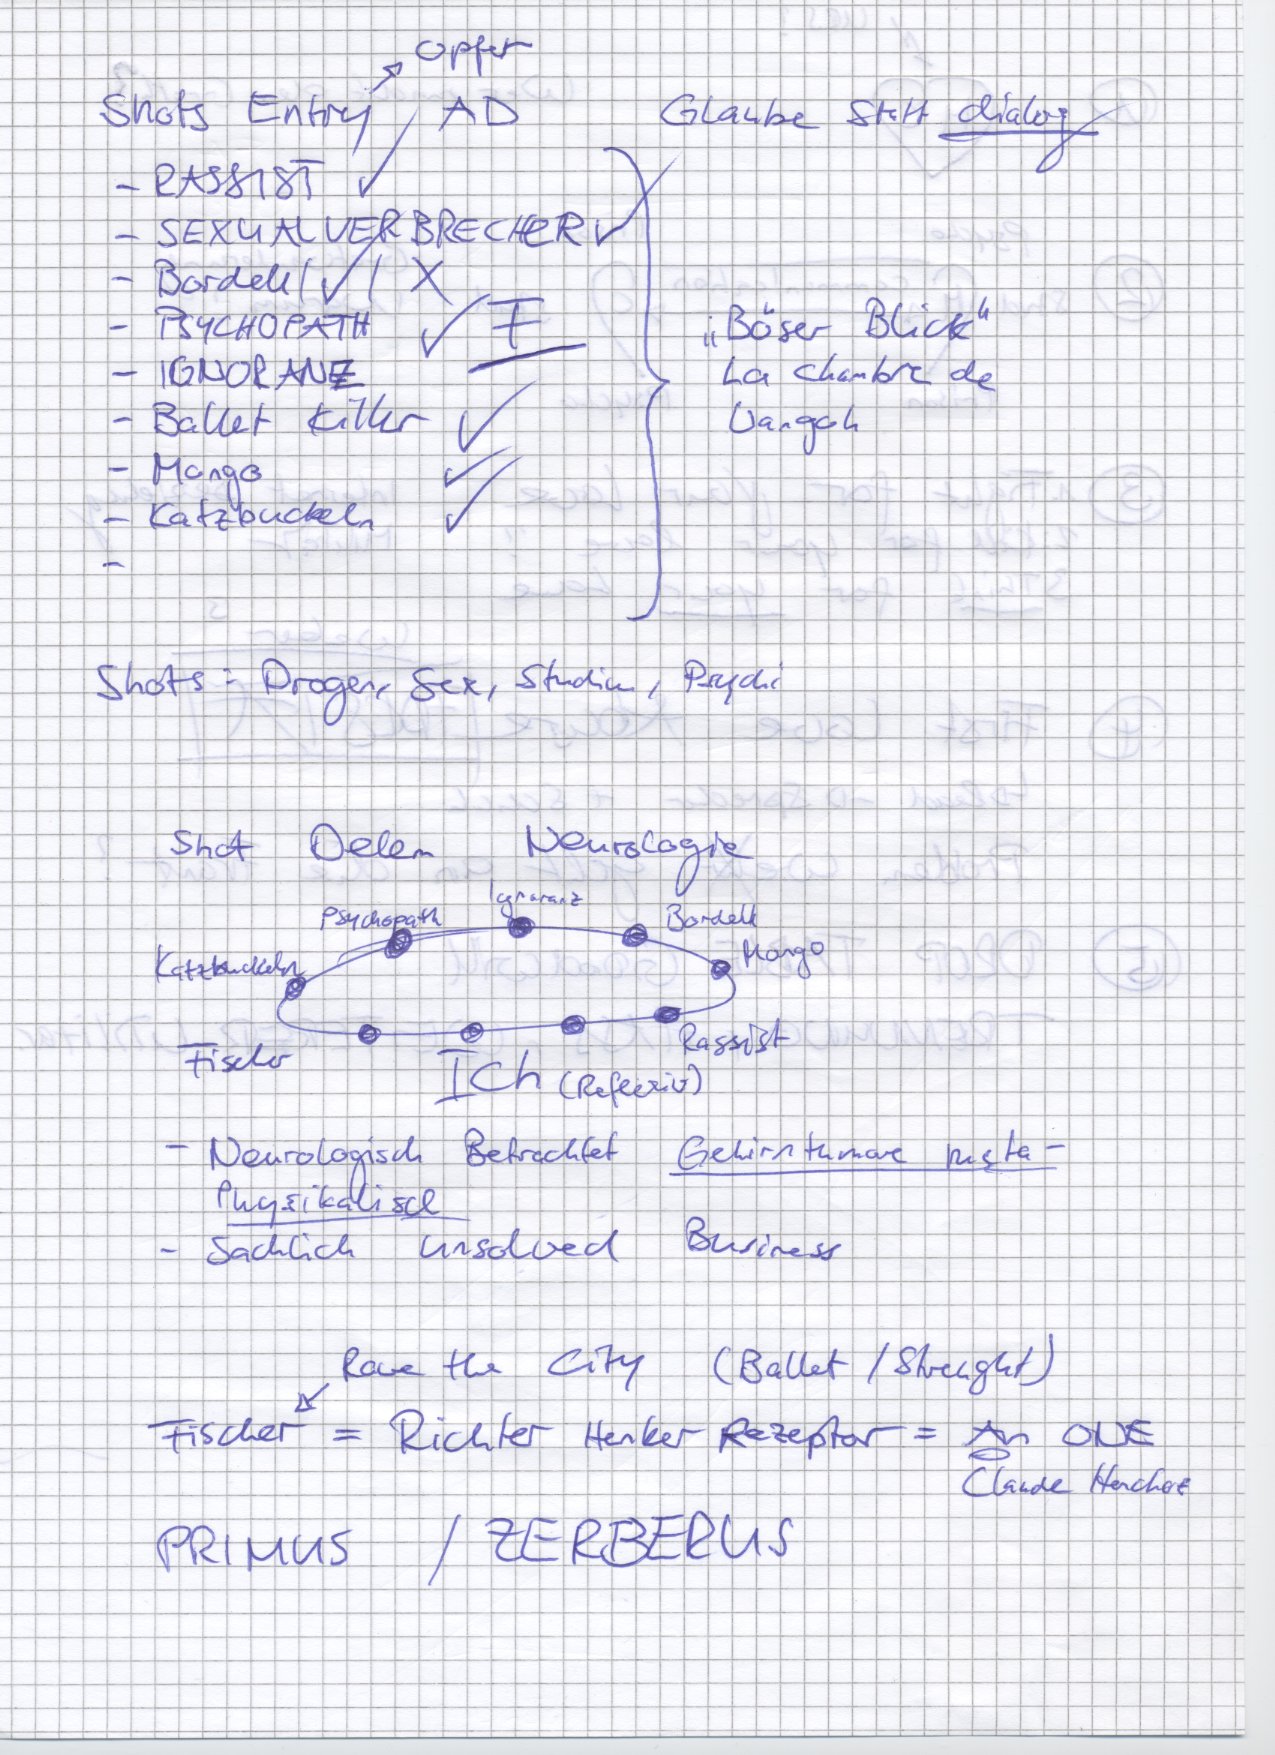 Opfer
Shots Entry AD
Glaube statt dialog
- RASSIST ✓
- SEXUALVERBRECHER ✓
- Bordell / ✓ / X
- PSYCHOPATH ✓ I
- IGNORANZ
- Ballet Killer ✓
- Mango ✓
- Katzbuckeln ✓
-
„Böser Blick“
La chambre de
Vangoh
Shots: Drogen, Sex, Studium, Psychi
Shot Neurologie
Psychopath
Ignoranz
Bordell
Mango
Katzbuckeln
Rassist
Fischer
Ich (Reflexiv)
- Neurologisch Betrachtet Gehirnthmore meta-
Physikalisch
- Sachlich unsolved Business
Rave the City (Ballet / Strenght)
Fischer = Richter Henker Rezeptor = An ONE
Claude
PRIMUS / ZERBERUS